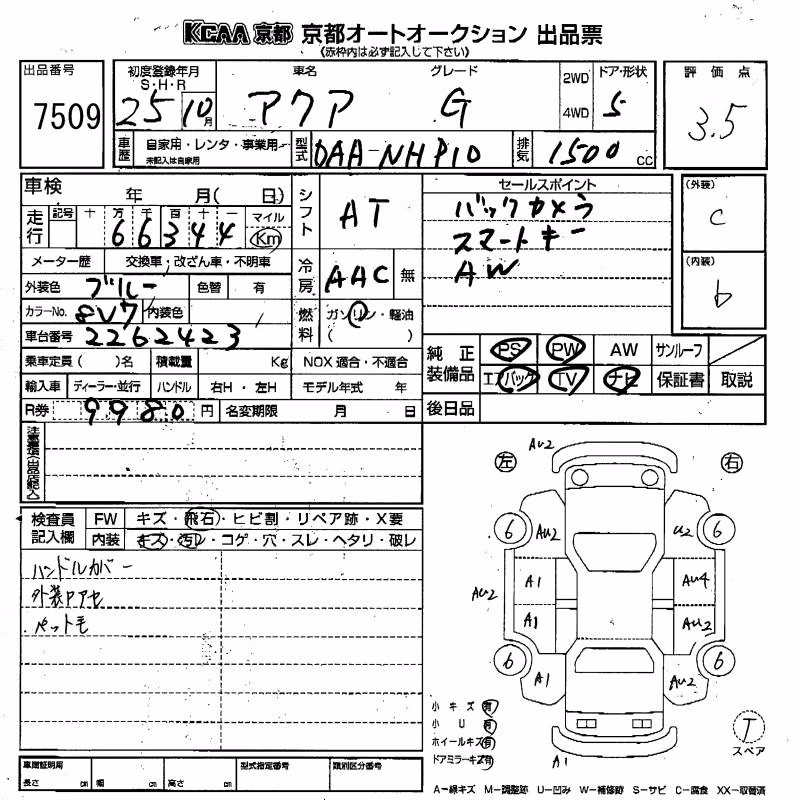 KCAA 京都 京都オートオークション 出品票
《赤枠内は必ず記入して下さい》
出品番号
7509
初度登録年月
S・H・R
25 10月
車名
アクア
グレード
G
2WD
4WD
ドア・形状
5
評価点
3.5
車歴
自家用・レンタ・事業用
未記入は自家用
型式
DAA-NHP10
排気
1500 cc
車検 年 月( 日)
走行
記号 十 万 千 百 十 一
66344
マイル
Km
メーター歴 交換車・改ざん車・不明車
外装色 ブルー 色替 有
カラーNo. 8V7 内装色
車台番号 2262423
シフト AT
冷房 AAC 無
燃料 ガソリン・軽油
( )
セールスポイント
バックカメラ
スマートキー
AW
(外装)
C
(内装)
b
乗車定員( )名 積載量 Kg NOX適合・不適合
輸入車 ディーラー・並行 ハンドル 右H・左H モデル年式 年
R券 9980 円 名変期限 月 日
純正装備品
PS PW AW サンルーフ
エアバック TV ナビ 保証書 取説
後日品
注意事項(出品店記入)
検査員記入欄
FW キズ・飛石・ヒビ割・リペア跡・X要
内装 キズ・汚レ・コゲ・穴・スレ・ヘタリ・破レ
ハンドルカバー
外装アワセ
ペット毛
左
右
AU2
6
AU2
U2
6
AU2
A1
AU4
A1
AU2
6
A1
AU2
6
A1
小キズ 有
小U 有
ホイールキズ 有
ドアミラーキズ 有
T
スペア
車庫証明用
長さ cm 幅 cm 高さ cm
型式指定番号
類別区分番号
A−線キズ M−調整跡 U−凹み W−補修跡 S−サビ C−腐食 XX−取替済